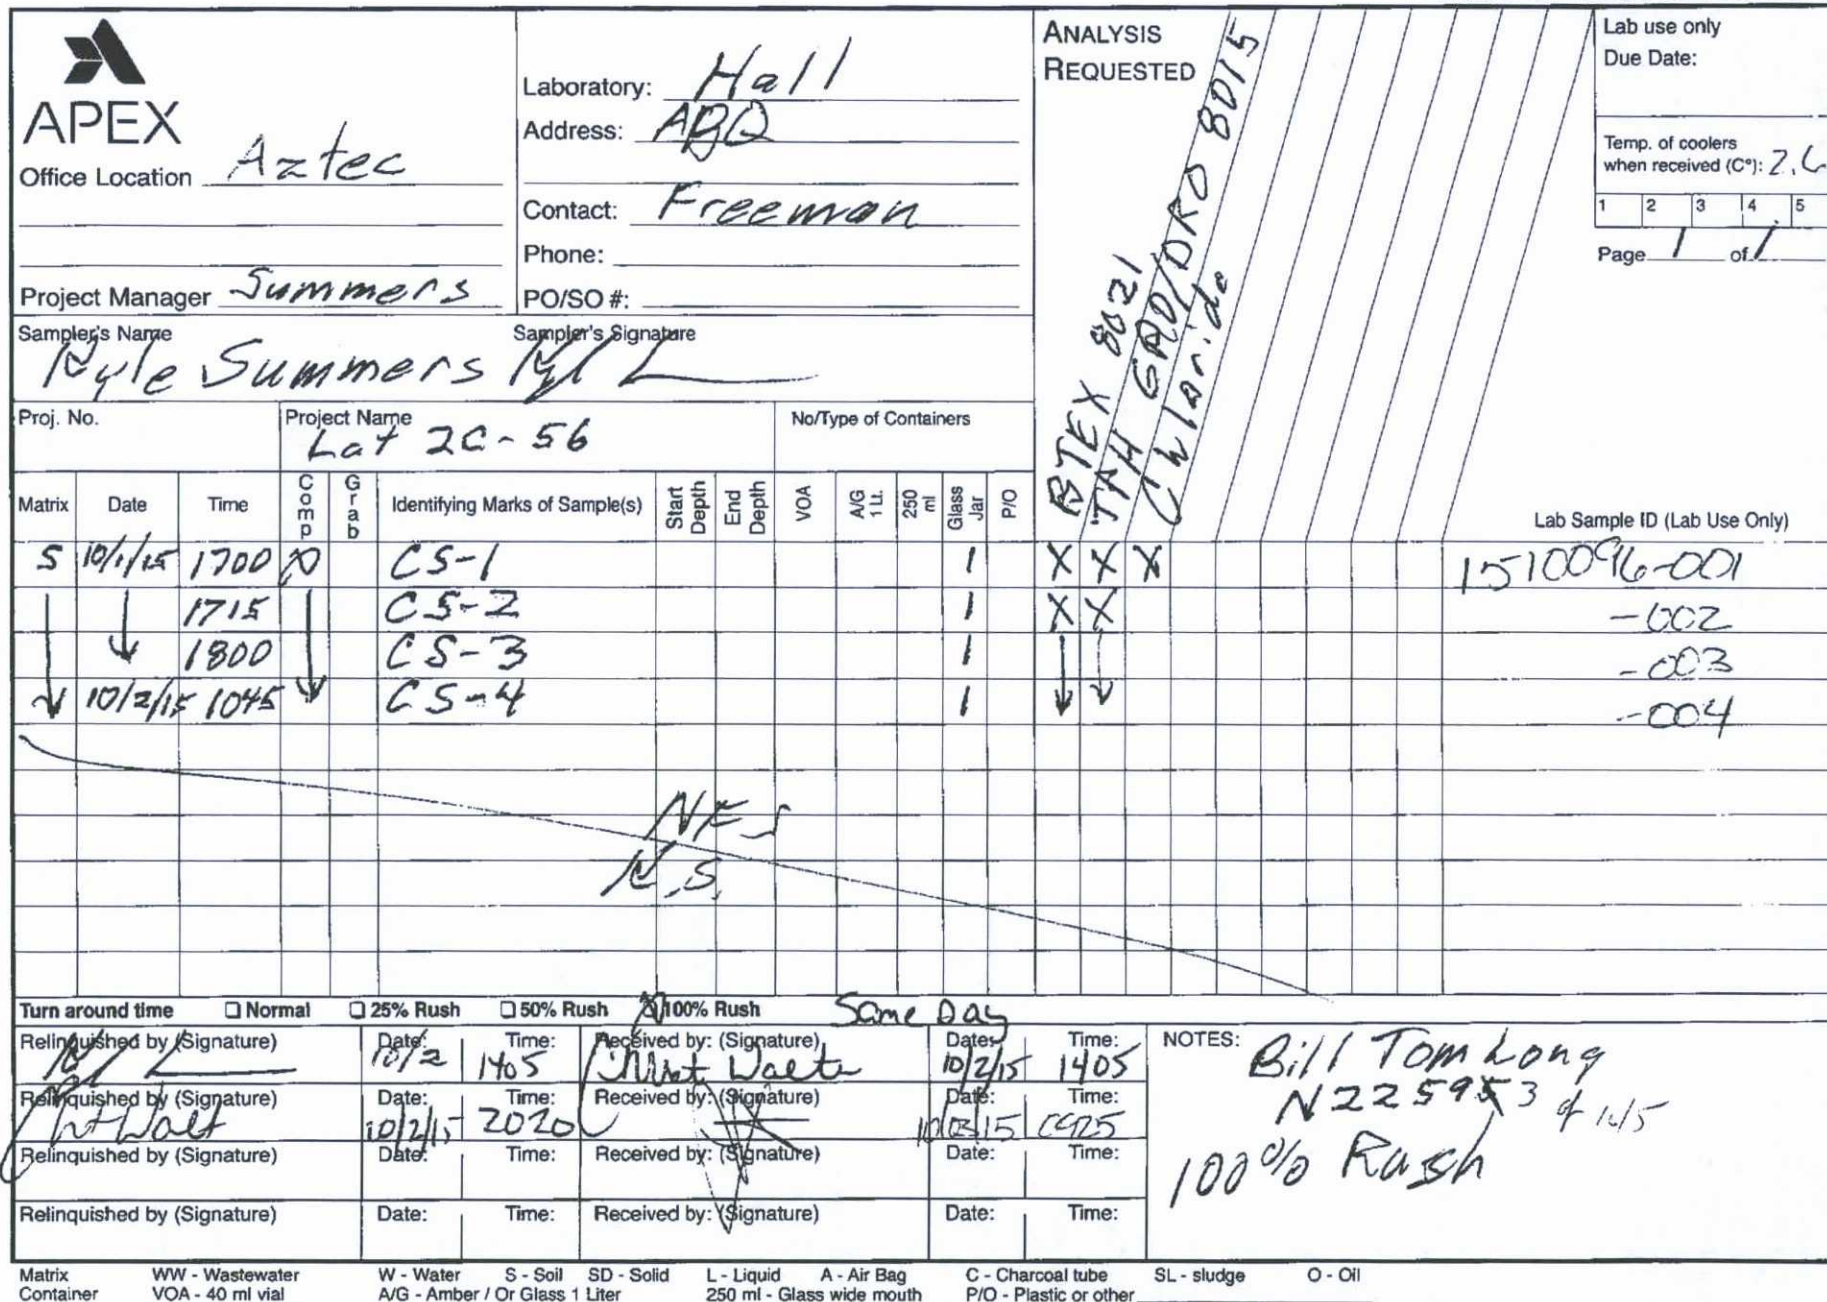 APEX
Office Location Aztec
Project Manager Summers
Laboratory: Hall
Address: ABQ
Contact: Freeman
Phone:
PO/SO #:
ANALYSIS
REQUESTED
BTEX 8021
TPH GRO/DRO 8015
Chloride
Lab use only
Due Date:
Temp. of coolers
when received (C°): 2.6
1 2 3 4 5
Page 1 of 1
Sampler's Name Sampler's Signature
Kyle Summers
Proj. No. Project Name No/Type of Containers
Lat 2C-56
Matrix Date Time Comp Grab Identifying Marks of Sample(s) Start Depth End Depth VOA A/G 1 Lt. 250 ml Glass Jar P/O Lab Sample ID (Lab Use Only)
S 10/1/15 1700 CS-1 1 X X X 1510096-001
1715 CS-2 1 X X -002
1800 CS-3 1 -003
10/2/15 1045 CS-4 1 -004
Turn around time Normal 25% Rush 50% Rush 100% Rush Same Day
Relinquished by (Signature) Date: Time: Received by: (Signature) Date: Time: NOTES:
10/2 1405 10/2/15 1405 Bill Tom Long
Relinquished by (Signature) Date: Time: Received by: (Signature) Date: Time:
10/2/15 2020 10/03/15 N22595 3
Relinquished by (Signature) Date: Time: Received by: (Signature) Date: Time:
100% Rush
Relinquished by (Signature) Date: Time: Received by: (Signature) Date: Time:
Matrix WW - Wastewater W - Water S - Soil SD - Solid L - Liquid A - Air Bag C - Charcoal tube SL - sludge O - Oil
Container VOA - 40 ml vial A/G - Amber / Or Glass 1 Liter 250 ml - Glass wide mouth P/O - Plastic or other